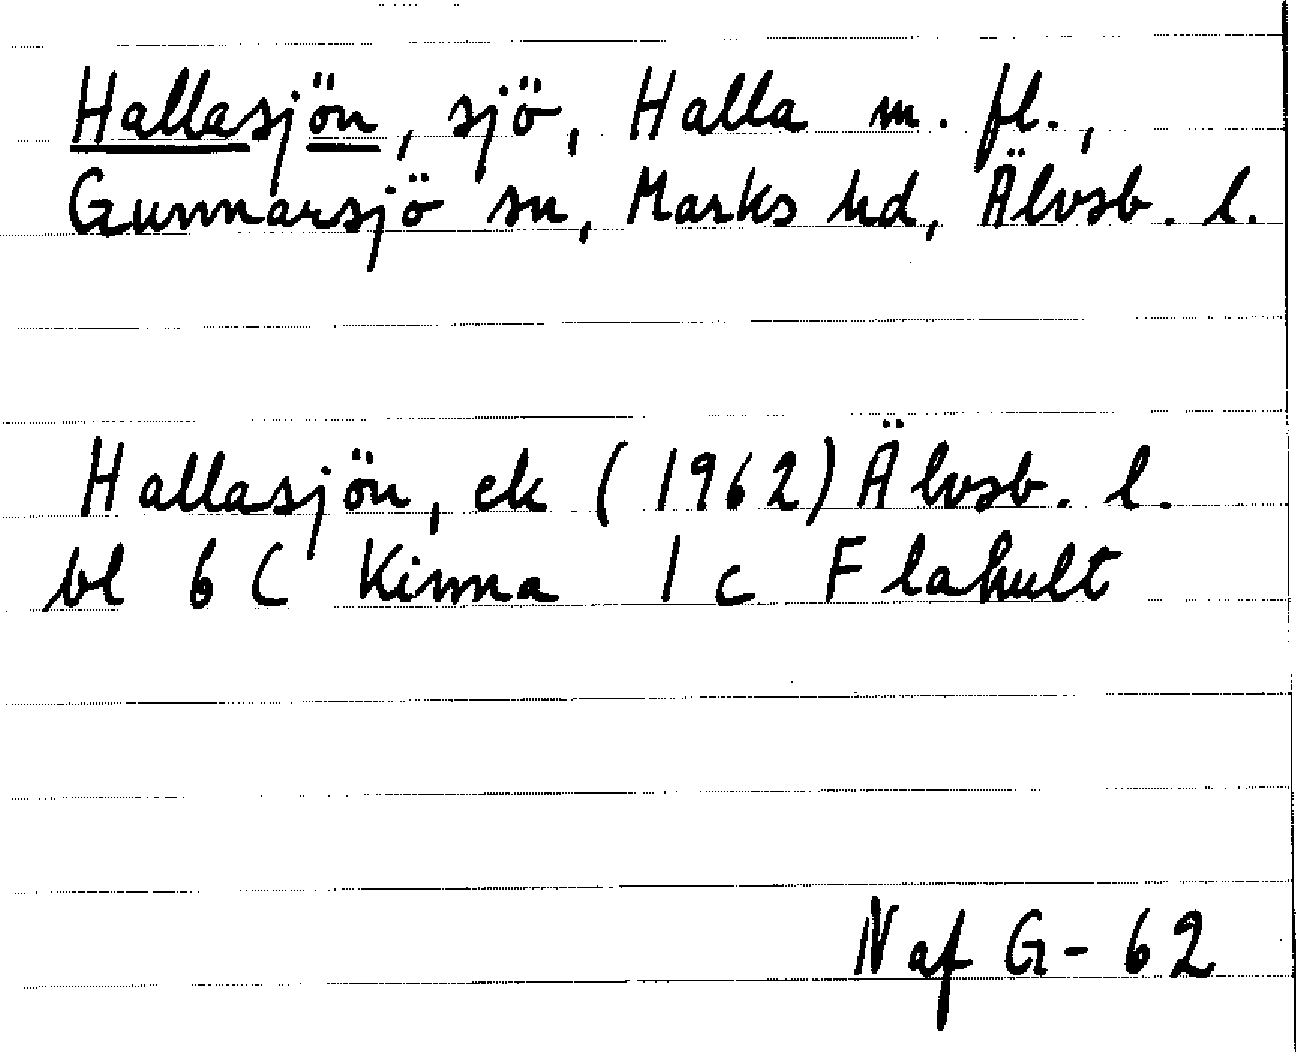 Hallasjön, sjö, Halla m. fl.,
Gunnarsjö sn, Marks hd, Älvsb. l.
Hallasjön, ek (1962) Älvsb. l.
bl 6 C Kinna 1 c Flahult
N af G - 62